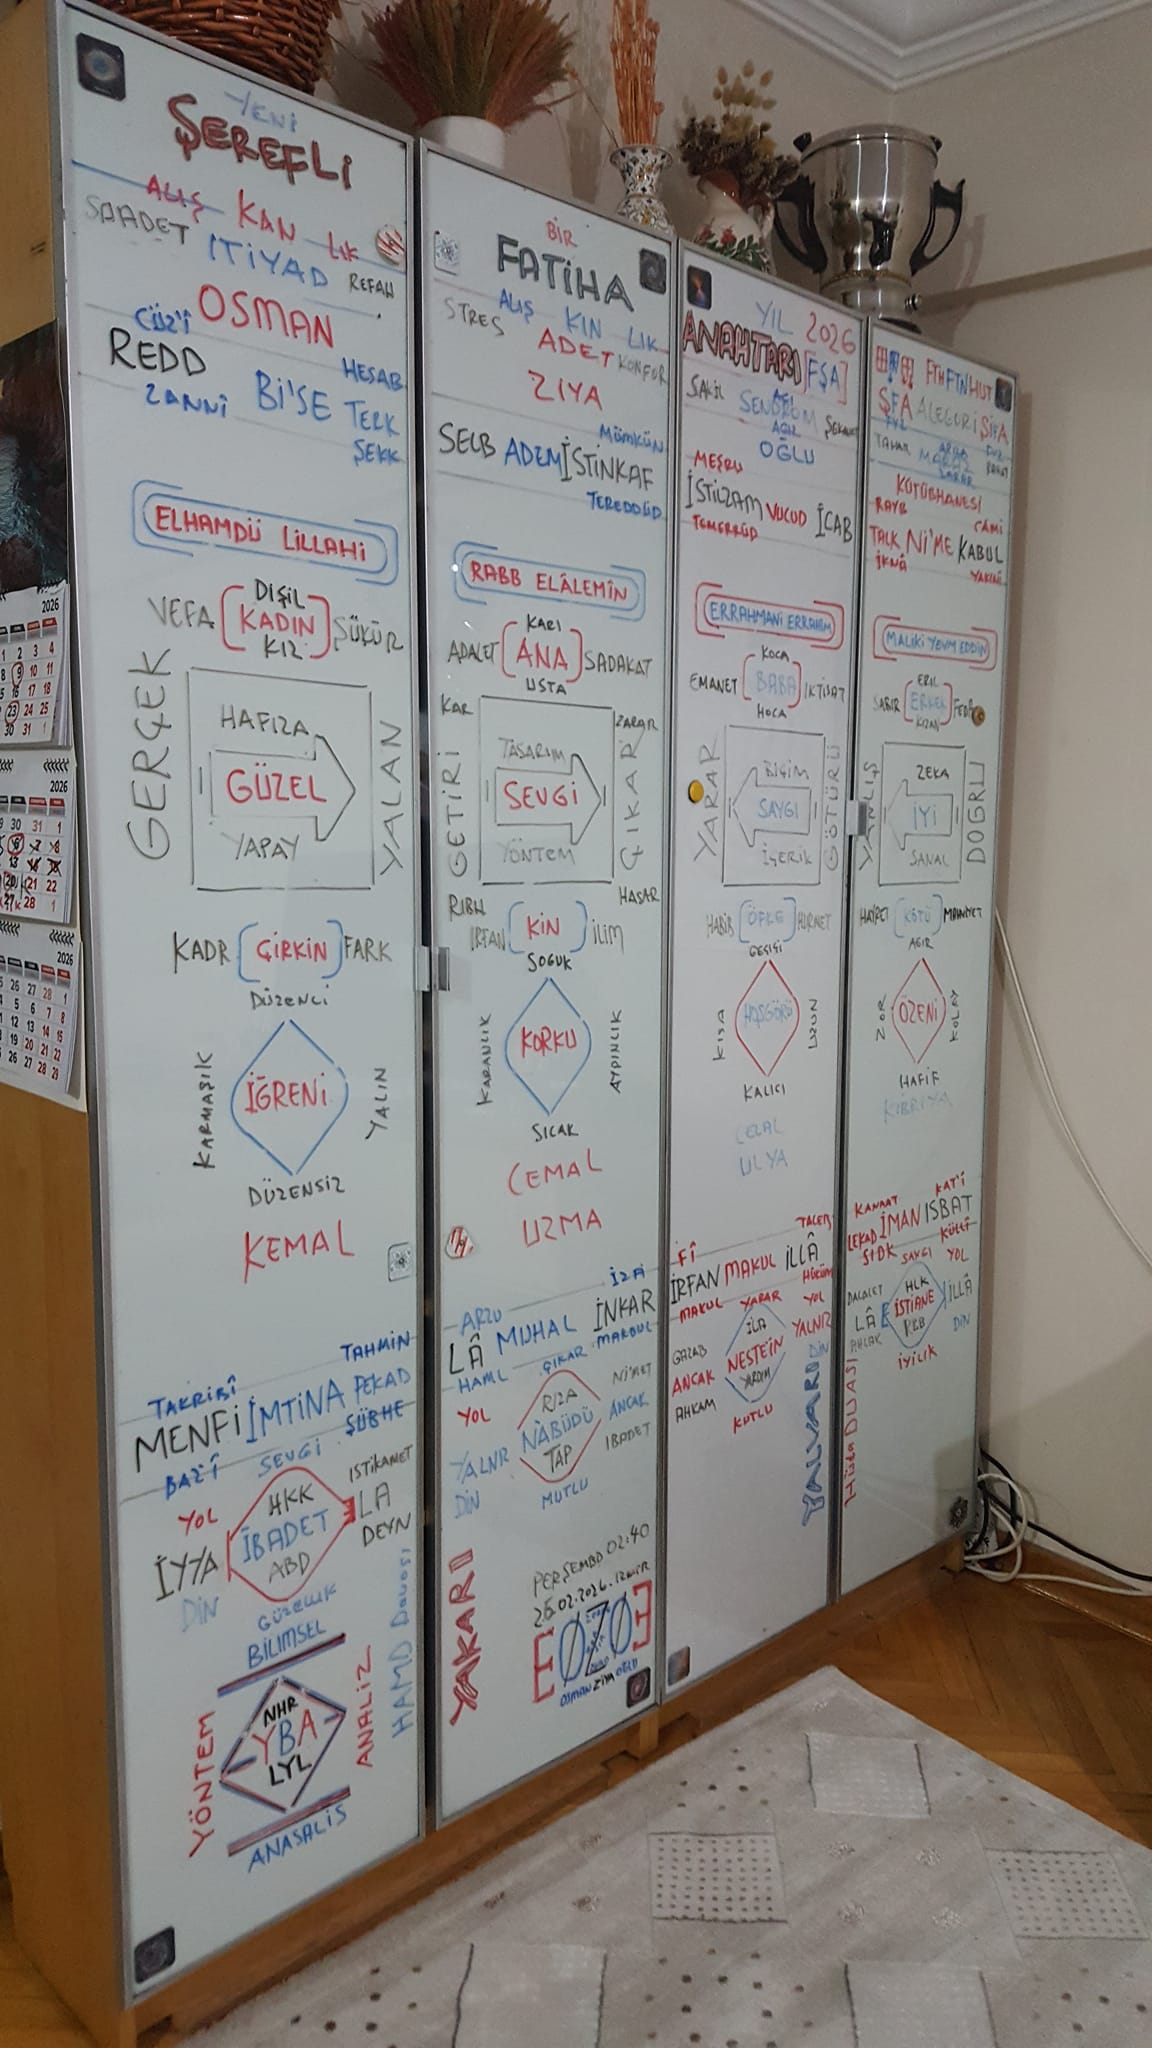 YENİ
ŞEREFLİ
ALIŞ KAN LIK
SAADET İTİYAD REFAH
OSMAN
CÜZ'İ
REDD HESAB
ZANNİ Bİ'SE TERK
ŞEKK
ELHAMDÜ LİLLAHİ
DİŞİL
VEFA [KADIN] ŞÜKÜR
KIZ
GERÇEK
HAFIZA
GÜZEL
YAPAY
YALAN
KADR [ÇİRKİN] FARK
DÜZENLİ
KARMAŞIK
İĞRENİ
YALIN
DÜZENSİZ
KEMAL
TAHMİN
TAKRİBÎ
MENFİ İMTİNA PEKAD
BAZ'Î SEVGİ ŞÜBHE
YOL HKK İSTİKAMET
İYYA İBADET LA
DİN ABD DEYN
GÜZELLİK
BİLİMSEL
YÖNTEM
NHR
YBA
LYL
ANALİZ
ANASALİS
HAMD Davası
BİR
FATİHA
ALIŞ KIN LIK
STRES ADET KONFOR
ZİYA
MÜMKÜN
SELB ADEM İSTİNKAF
TEREDDÜD
RABB ELÂLEMİN
KARI
ADALET [ANA] SADAKAT
USTA
KAR ZARAR
GETİRİ
TASARIM
SEVGİ
YÖNTEM
ÇIKAR
RIBH HASAR
İRFAN [KİN] İLİM
SOĞUK
KARANLIK
KORKU
AYDINLIK
SICAK
CEMAL
UZMA
İZAİ
ARZU
LÂ MUHAL İNKAR
HAML ÇIKAR MAKBUL
YOL RIZA NİMET
YALNIZ NÂBÜDÜ ANCAK
DİN TAP İBADET
MUTLU
YAKARI
PERŞEMBE 02:40
26.02.2026.İZMİR
OSMAN ZİYA OĞLU
YIL 2026
ANAHTARI [FŞA]
ŞAKİL SENDROM
OĞLU
MEŞRU
İSTİLZAM VUCUD İCAB
TEMERRÜD
ERRAHMANİ ERRAHİM
KOCA
EMANET [BABA] İKTİSAT
HOCA
YARAR
BİÇİM
SAYGI
İÇERİK
GÖTÜRÜ
HABİB [ÖFKE] HÜRMET
GEÇİCİ
KISA
HOŞGÖRÜ
UZUN
KALICI
CELAL
ULYA
TALEB
FÎ
İRFAN MAKUL İLLÂ
MAKUL YARAR HÜKÜM
İLA YOL
GAZAB NESTEİN YALNIZ
ANCAK YARDIM DİN
AHKAM
KUTLU
YALVARI
FTH FTN HUT
ŞFA ALEGORİ ŞİFA
KÜTÜBHANESİ
RAYB CAMİ
TALK Nİ'ME KABUL
İKNÂ YAKINÎ
MALİKİ YEVM EDDİN
ERİL
SABIR [ERKEK] FEDA
KIZAN
YANLIŞ
ZEKA
İYİ
SANAL
DOĞRU
HAYRET [KÖTÜ] MAHVİYET
AĞIR
ZOR
ÖZENİ
KOLAY
HAFİF
KİBRİYA
KANAAT KAT'İ
LEKAD İMAN İSBAT
SIDK SAYGI KÜLLÎ
YOL
DALALET HLK İLLÂ
LÂ İSTİANE
AHLAK RBB DİN
İYİLİK
Hüda DUASI
2026
2026
2026